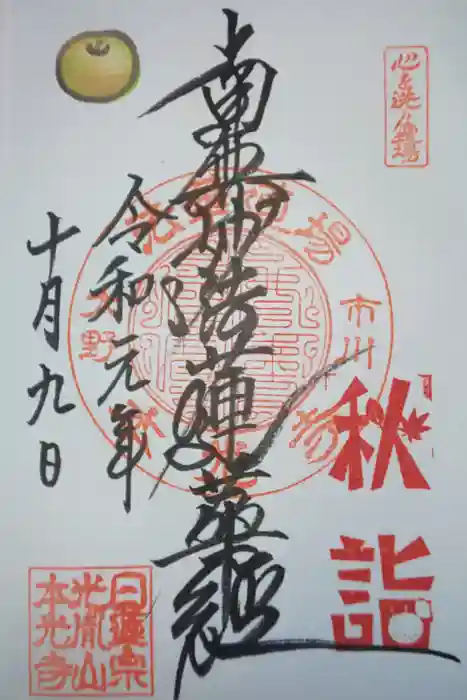 心を洗う道場
南無妙法蓮華経
秋詣
令和元年
十月九日
市川
日蓮宗
光胤山
本光寺